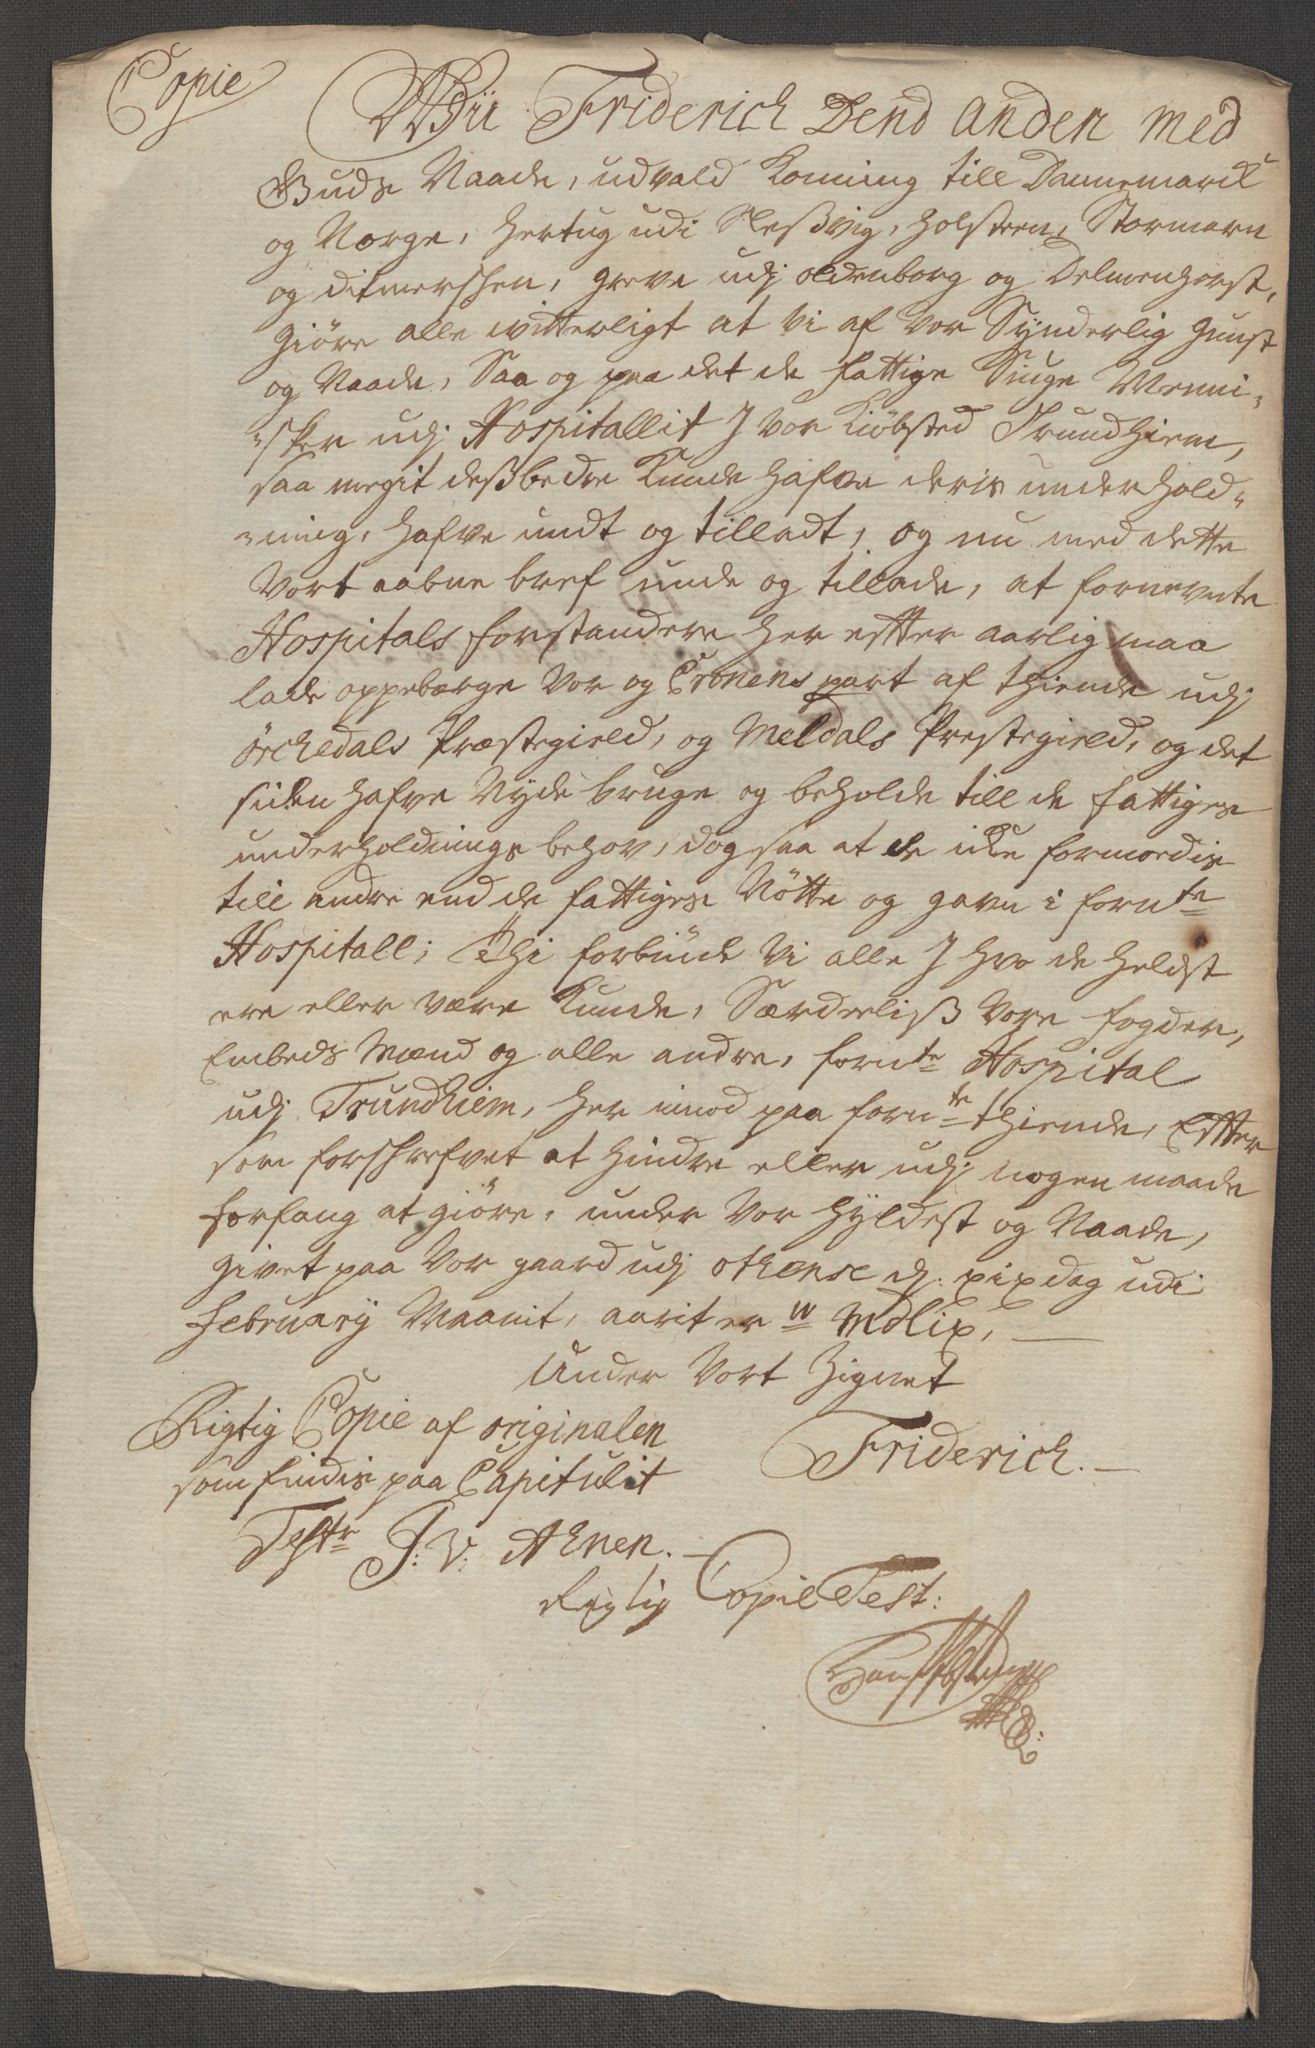 Copie
Wii Friderich Dend Anden Med
Guds Naade, udvald Konning till Dannemarck
og Norge, Hertug udi Sleßvig, Holsteen, Stormarn
og Ditmerschen, Greve udj Oldenborg og Delmenhorst,
Giöre alle witterligt at Vi af Vor Synderlig Gunst
og Naade, Saa og paa det de fattige Siuge Menni-
-sker udj Hospitallit J Vor Kiöbsted Trundhiem,
saa megit deßbedre Kunde hafve deris underhold-
-ning, Hafve undt og tilladt, og nu med dette
Vort aabne bref unde og tillade, at fornevnte
Hospitals forstandere her effter aarlig maa
lade oppebærge Vor og Cronens part af thiende udj
örchedals Præstegield, og Meldals Prestegield, og det
siden hafve Nyde bruge og beholde till de fattiges
underholdnings behov, dog saa at de icke formordis
till andre end de fattiges Nötte og gavn i fornte
Hospitall; Thi forbiude Vi alle J hvo de helst
ere eller være Kunde, Særdeeliß Vore fogder,
Embeds Mænd og alle andre, fornte Hospital
udj Trundhiem, her imod paa fornte thiende, Effter
som forschrefvet at hindre eller udj nogen maade
forfang at giöre, under Vor Hyldest og Naade,
givet paa Vor gaard udj othense dj: xix dag udi
February Maanit, aarit er Mdlix,
Under Vort Zignet
Friderich.
Rigtig Copie af originalen
som findis paa Capitulit
Test J: V: Ahnen.
Rigtig Copie Test: